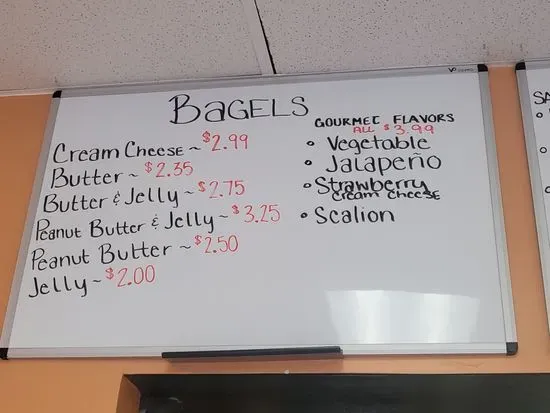 BAGELS
Cream Cheese ~ $2.99
Butter ~ $2.35
Butter & Jelly ~ $2.75
Peanut Butter & Jelly ~ $3.25
Peanut Butter ~ $2.50
Jelly ~ $2.00
GOURMET FLAVORS
ALL $3.99
• Vegetable
• Jalapeño
• Strawberry
Cream Cheese
• Scalion
SA